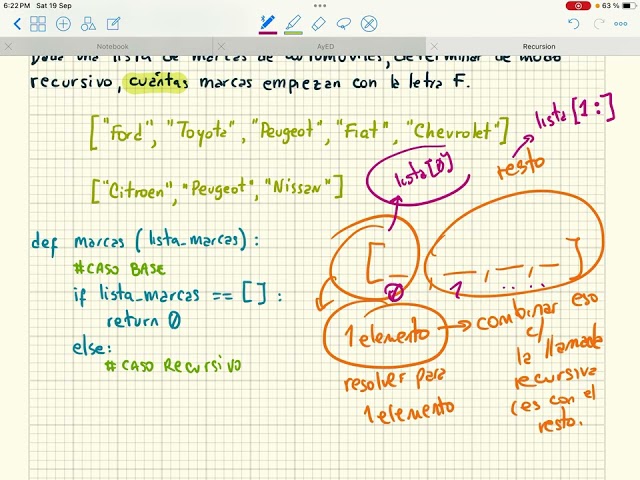 6:22 PM Sat 19 Sep
63 %
Notebook
AyED
Recursion
Dada una lista de marcas de automóviles, determinar de modo
recursivo, cuántas marcas empiezan con la letra F.
["Ford", "Toyota", "Peugeot", "Fiat", "Chevrolet"]
["Citroen", "Peugeot", "Nissan"]
lista[0]
lista[1:]
resto
def marcas (lista_marcas):
#CASO BASE
if lista_marcas == []:
return 0
else:
#CASO RECURSIVO
[
]
0
1
1 elemento
resolver para
1 elemento
combinar eso
c/
la llamada
recursiva
(es con el
resto.